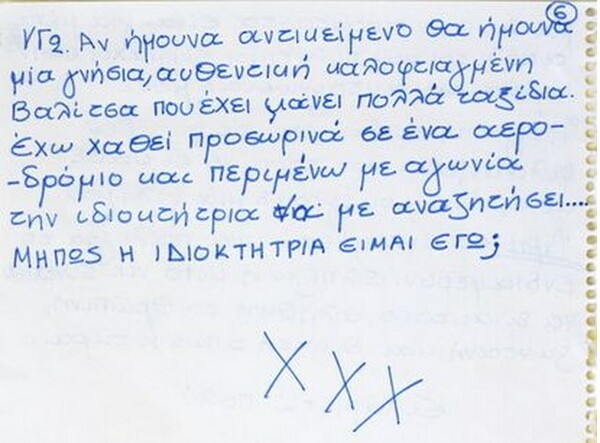 6
ΥΓ2. Αν ήμουνα αντικείμενο θα ήμουνα
μία γνήσια, αυθεντική καλοφτιαγμένη
βαλίτσα που έχει κάνει πολλά ταξίδια.
Έχω χαθεί προσωρινά σε ένα αερο-
-δρόμιο και περιμένω με αγωνία
την ιδιοκτήτρια να με αναζητήσει....
ΜΗΠΩΣ Η ΙΔΙΟΚΤΗΤΡΙΑ ΕΙΜΑΙ ΕΓΩ;
Χ Χ Χ